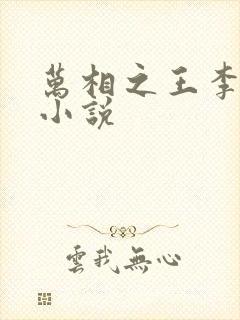 萬相之王李
小說
雲我無心